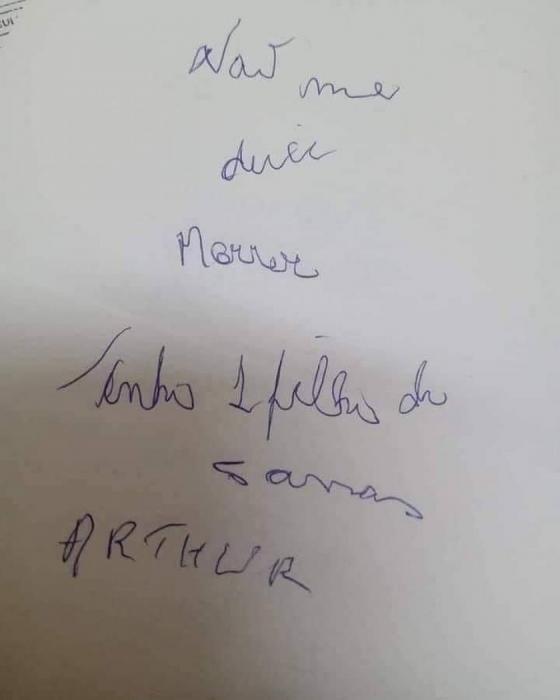 Não me
deixe
Morrer
Tenho 1 filho de
5 anos
ARTHUR